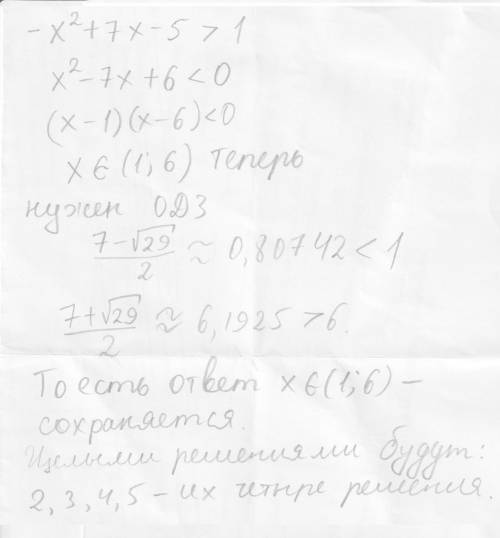 -x²+7x-5>1
x²-7x+6<0
(x-1)(x-6)<0
x∈(1;6) теперь
нужен ОДЗ
(7-√29)/2 ≈ 0,80742<1
(7+√29)/2 ≈ 6,1925>6.
То есть ответ x∈(1;6) –
сохраняется.
Целыми решениями будут:
2,3,4,5 – их четыре решения.